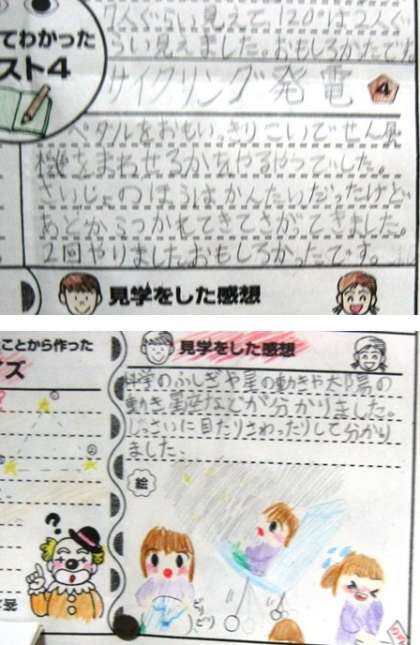 7人ぐらい見えて120°は2人ぐ
らい見えました。おもしろかたです
てわかった
スト4
サイクリング発電 4
ペタルをおもいっきりこいでせん風
機をまわせるかをやるやつでした。
さいしょのほうはかんたいだったけど
あとからつかれてきてさがってきました。
2回やりました。おもしろかったです。
見学をした感想
ことから作った
イズ
見学をした感想
科学のふしぎや星の動きや太陽の
動き、星座などが分かりました。
じっさいに目たりさわったりして分かり
ました。
絵
?
ビリ
ビリ